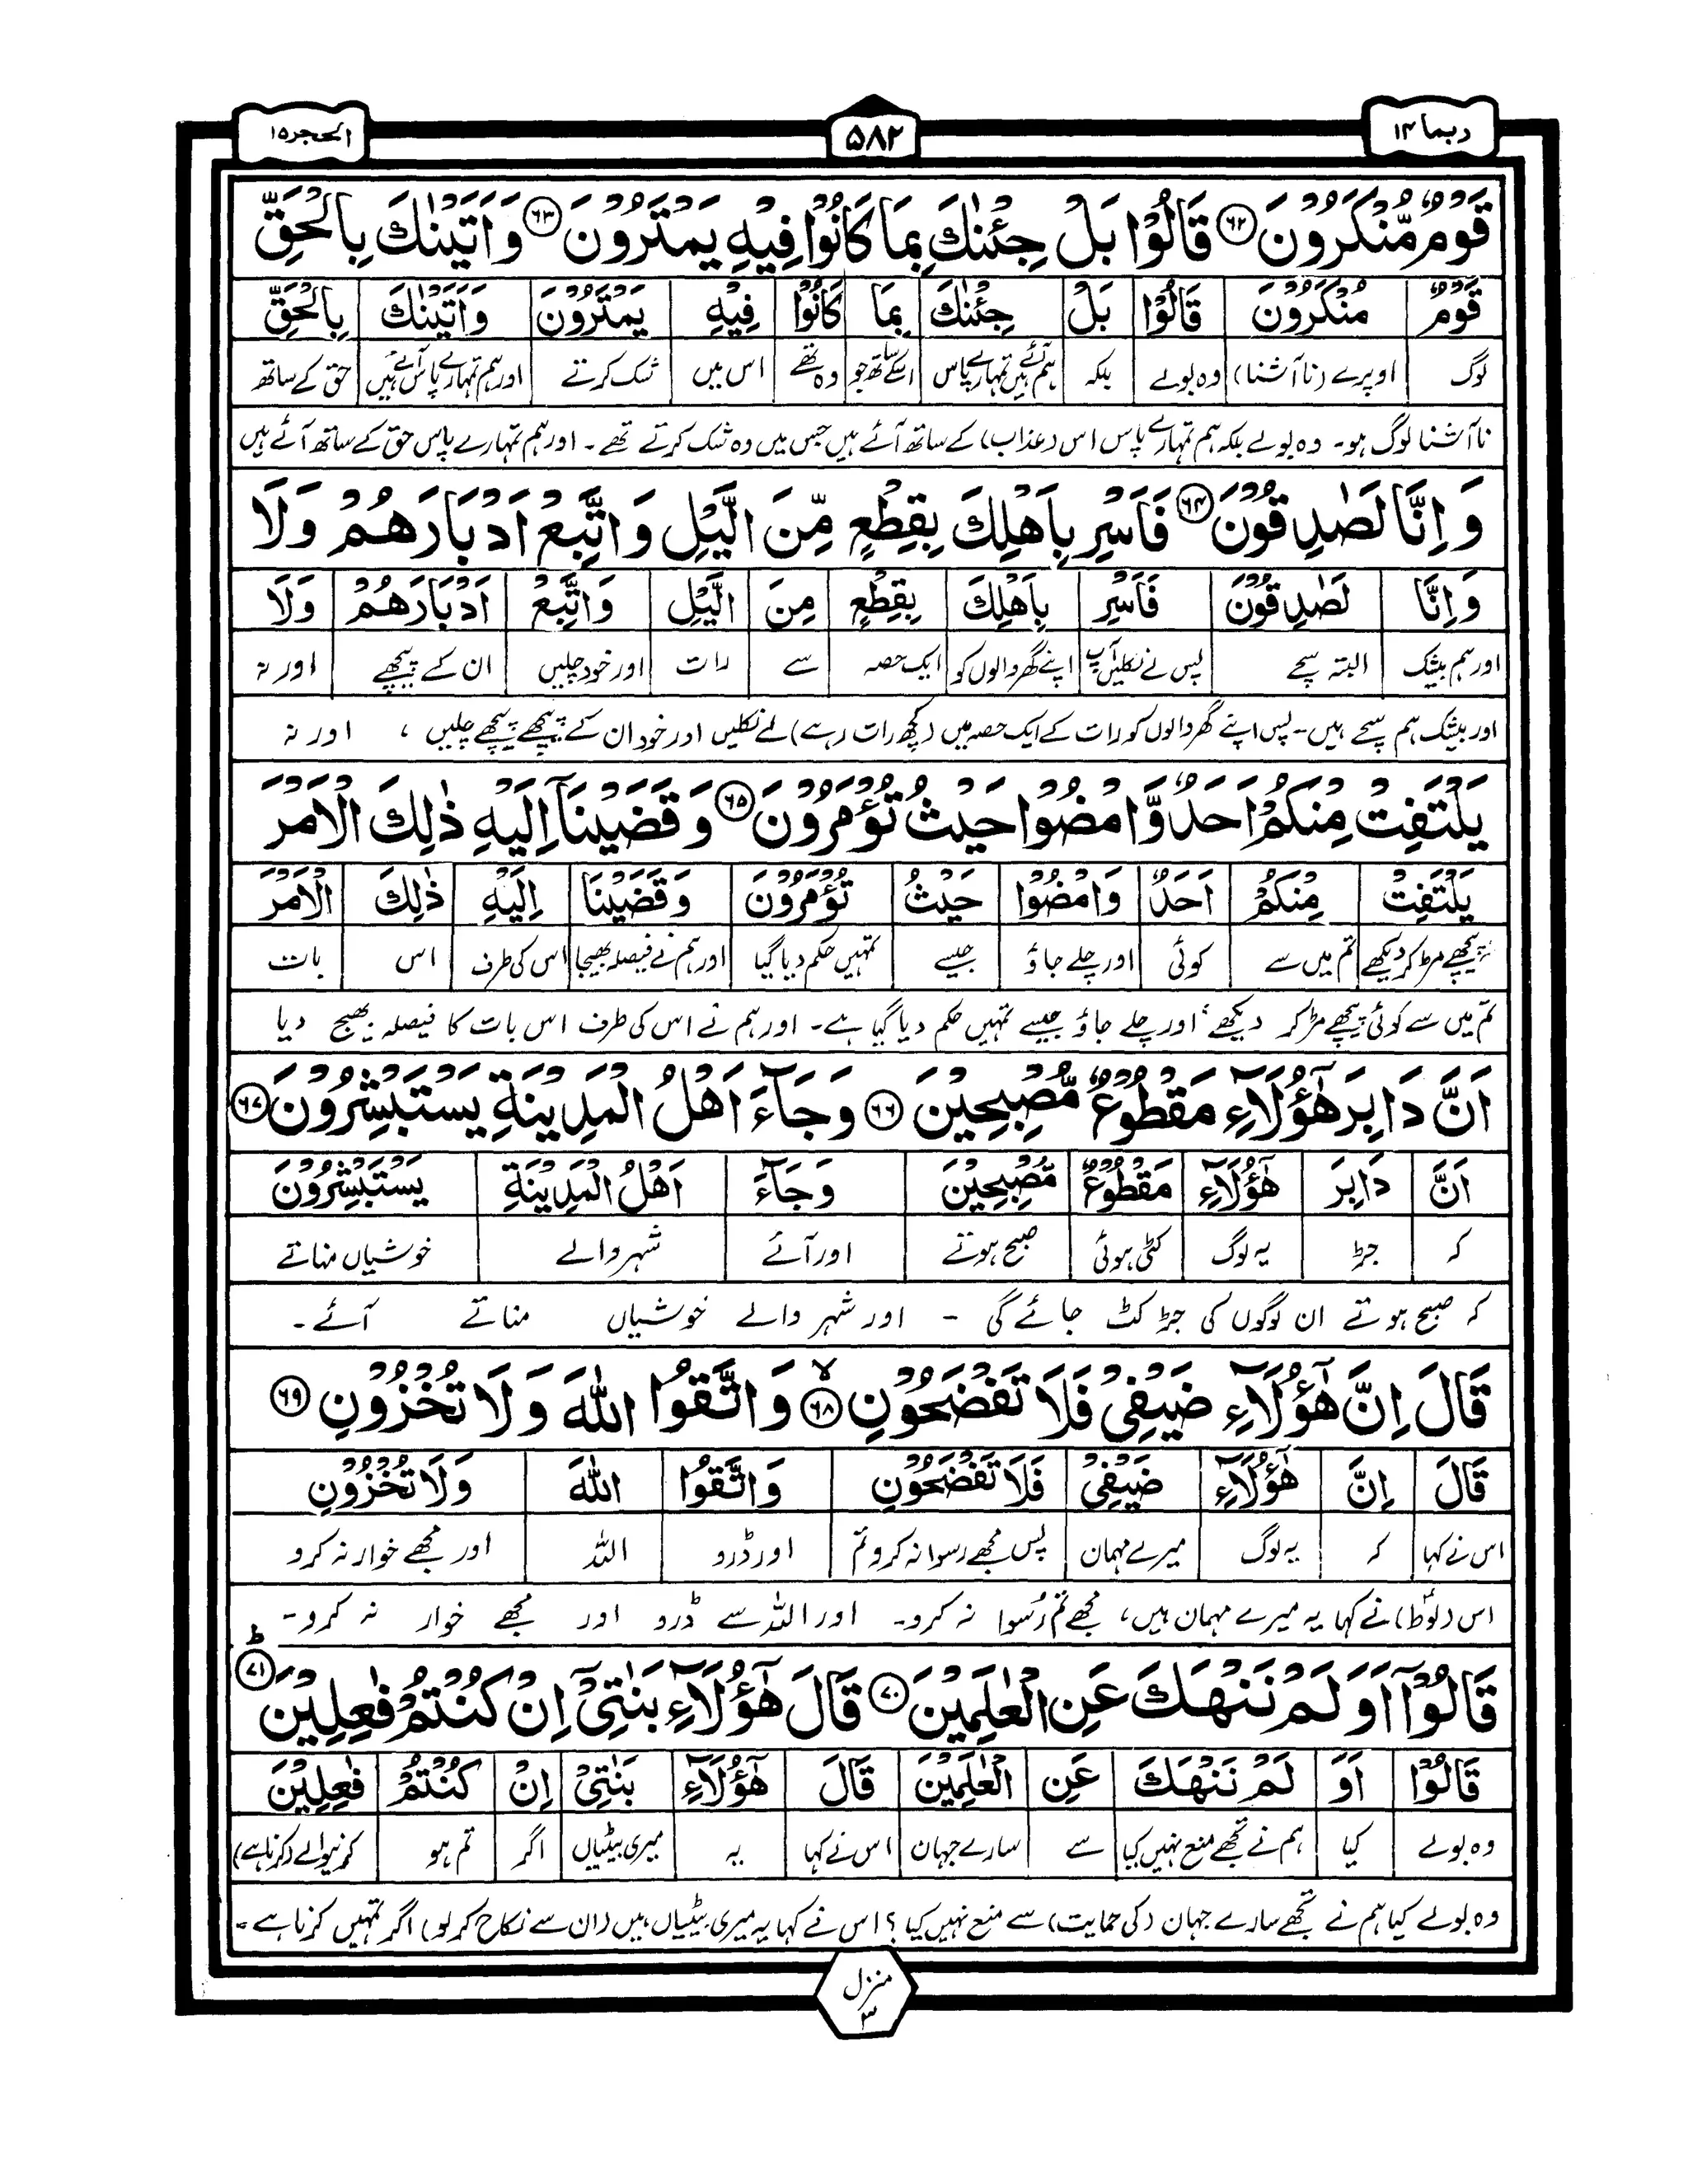 ربما ۱۴
۵۸۲
الحجر ۱۵
قَوْمٌ مُّنْكَرُوْنَ ۶۲ قَالُوْا بَلْ جِئْنٰكَ بِمَا كَانُوْا فِيْهِ يَمْتَرُوْنَ ۶۳ وَاَتَيْنٰكَ بِالْحَقِّ
قَوْمٌ مُنْكَرُوْنَ قَالُوْا بَلْ جِئْنٰكَ بِمَا كَانُوْا فِيْهِ يَمْتَرُوْنَ وَاَتَيْنٰكَ بِالْحَقِّ
لوگ اوپرے (ناآشنا) وہ بولے بلکہ ہم آئے ہیں تمہارے پاس اسکے ساتھ جو وہ تھے اس میں شک کرتے اور ہم تمہارے پاس آئے ہیں حق کے ساتھ
ناآشنا لوگ ہو۔ وہ بولے بلکہ ہم تمہارے پاس اس (عذاب) کے ساتھ آئے ہیں جس میں وہ شک کرتے تھے۔ اور ہم تمہارے پاس حق کے ساتھ آئے ہیں
وَاِنَّا لَصٰدِقُوْنَ ۶۴ فَاَسْرِ بِاَهْلِكَ بِقِطْعٍ مِّنَ الَّيْلِ وَاتَّبِعْ اَدْبَارَهُمْ وَلَا
وَاِنَّا لَصٰدِقُوْنَ فَاَسْرِ بِاَهْلِكَ بِقِطْعٍ مِنَ الَّيْلِ وَاتَّبِعْ اَدْبَارَهُمْ وَلَا
اور ہم بیشک البتہ سچے پس لے نکلیں آپ اپنے گھر والوں کو ایک حصہ سے رات اور خود چلیں ان کے پیچھے اور نہ
اور بیشک ہم سچے ہیں۔ پس اپنے گھر والوں کو رات کے ایک حصہ میں (کچھ رات رہے) لے نکلیں اور خود ان کے پیچھے پیچھے چلیں، اور نہ
يَلْتَفِتْ مِنْكُمْ اَحَدٌ وَّامْضُوْا حَيْثُ تُؤْمَرُوْنَ ۶۵ وَقَضَيْنَآ اِلَيْهِ ذٰلِكَ الْاَمْرَ
يَلْتَفِتْ مِنْكُمْ اَحَدٌ وَامْضُوْا حَيْثُ تُؤْمَرُوْنَ وَقَضَيْنَا اِلَيْهِ ذٰلِكَ الْاَمْرَ
پیچھے مڑ کر دیکھے تم میں سے کوئی اور چلے جاؤ جیسے تمہیں حکم دیا گیا اور ہم نے فیصلہ بھیجا اس کی طرف اس بات
تم میں سے کوئی پیچھے مڑ کر دیکھے، اور چلے جاؤ جیسے تمہیں حکم دیا گیا ہے۔ اور ہم نے اس کی طرف اس بات کا فیصلہ بھیج دیا
اَنَّ دَابِرَ هٰٓؤُلَآءِ مَقْطُوْعٌ مُّصْبِحِيْنَ ۶۶ وَجَآءَ اَهْلُ الْمَدِيْنَةِ يَسْتَبْشِرُوْنَ ۶۷
اَنَّ دَابِرَ هٰٓؤُلَآءِ مَقْطُوْعٌ مُّصْبِحِيْنَ وَجَآءَ اَهْلُ الْمَدِيْنَةِ يَسْتَبْشِرُوْنَ
کہ جڑ یہ لوگ کٹی ہوئی صبح ہوتے اور آئے شہر والے خوشیاں مناتے
کہ صبح ہوتے ان لوگوں کی جڑ کٹ جائے گی۔ اور شہر والے خوشیاں مناتے آئے۔
قَالَ اِنَّ هٰٓؤُلَآءِ ضَيْفِيْ فَلَا تَفْضَحُوْنِ ۶۸ لا وَاتَّقُوا اللّٰهَ وَلَا تُخْزُوْنِ ۶۹
قَالَ اِنَّ هٰٓؤُلَآءِ ضَيْفِيْ فَلَا تَفْضَحُوْنِ وَاتَّقُوا اللّٰهَ وَلَا تُخْزُوْنِ
اس نے کہا کہ یہ لوگ میرے مہمان پس مجھے رسوا نہ کرو تم اور ڈرو اللہ اور مجھے خوار نہ کرو
اس (لوطؑ) نے کہا یہ میرے مہمان ہیں، مجھے تم رُسوا نہ کرو۔ اور اللہ سے ڈرو اور مجھے خوار نہ کرو۔
قَالُوْٓا اَوَلَمْ نَنْهَكَ عَنِ الْعٰلَمِيْنَ ۷۰ قَالَ هٰٓؤُلَآءِ بَنٰتِيْٓ اِنْ كُنْتُمْ فٰعِلِيْنَ ۷۱ ط
قَالُوْا اَوَ لَمْ نَنْهَكَ عَنِ الْعٰلَمِيْنَ قَالَ هٰٓؤُلَآءِ بَنٰتِيْٓ اِنْ كُنْتُمْ فٰعِلِيْنَ
وہ بولے کیا ہم نے تجھے منع نہیں کیا سے سارے جہان اس نے کہا یہ میری بیٹیاں اگر تم ہو کرنیوالے (کرنا ہے)
وہ بولے کیا ہم نے تجھے سارے جہان (کی حمایت) سے منع نہیں کیا؟ اس نے کہا یہ میری بیٹیاں ہیں (ان سے نکاح کر لو) اگر تمہیں کرنا ہے۔
منزل ۳